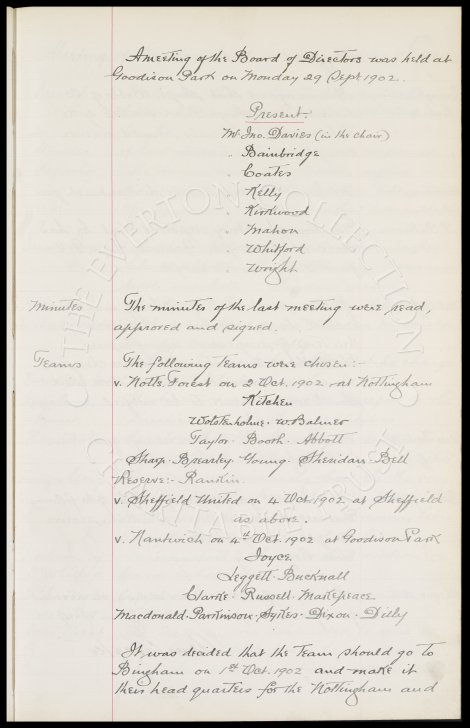 A meeting of the Board of Directors was held at
Goodison Park on Monday 29 Sept 1902.
Present.
Mr Jno. Davies (in the chair)
" Bainbridge
" Coates
" Kelly
" Kirkwood
" Mahon
" Whitford
" Wright
Minutes
The minutes of the last meeting were read,
approved and signed.
Teams
The following teams were chosen:-
v. Notts. Forest on 2 Oct. 1902 at Nottingham
Kitchen
Wolstenholme. W. Balmer
Taylor. Booth. Abbott
Sharp. Brearley. Young. Sheridan. Bell
Reserve:- Rankin.
v. Sheffield United on 4 Oct. 1902 at Sheffield
as above.
v. Nantwich on 4th Oct. 1902 at Goodison Park
Joyce.
Leggett. Bucknall
Clarke. Russell. Makepeace.
Macdonald. Parkinson. Sykes. Dixon. Dilly
It was decided that the Team should go to
Bingham on 1st Oct. 1902 and make it
their head quarters for the Nottingham and
THE EVERTON COLLECTION
CHARITABLE TRUST